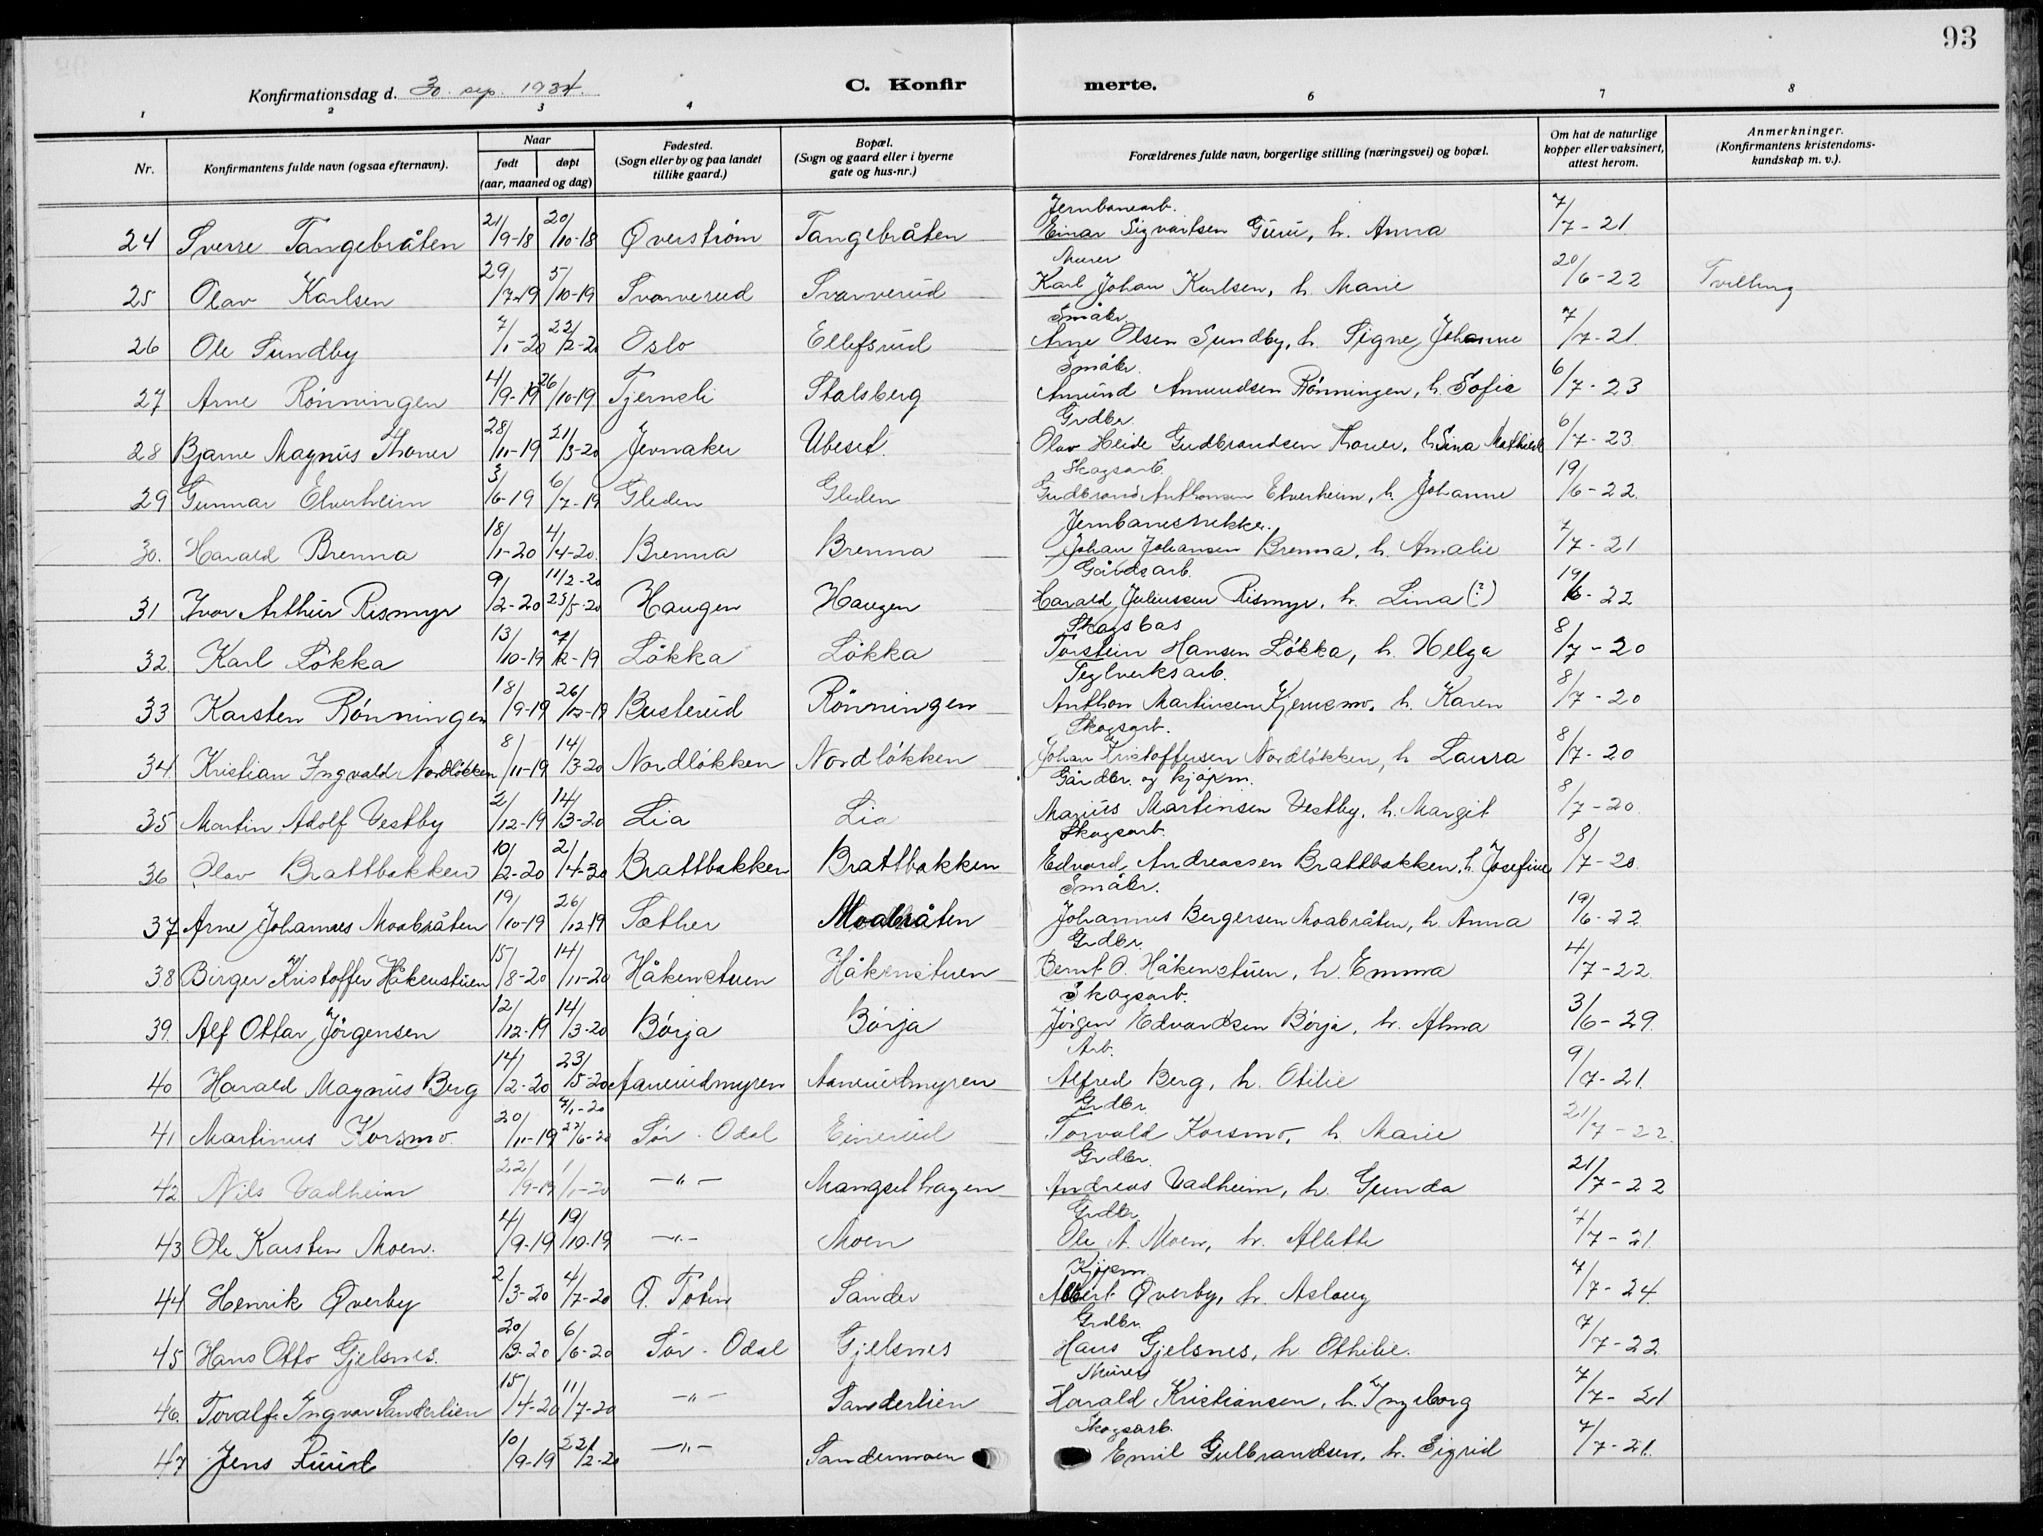 93
Konfirmationsdag d. 30. sep. 1934. C. Konfirmerte.
1 2 3 4 6 7 8
Nr. Konfirmantens fulde navn (ogsaa efternavn). Naar født døpt (aar, maaned og dag) Fødested. (Sogn eller by og paa landet tillike gaard.) Bopæl. (Sogn og gaard eller i byerne gate og hus-nr.) Forældrenes fulde navn, borgerlige stilling (næringsvei) og bopæl. Om hat de naturlige kopper eller vaksinert, attest herom. Anmerkninger. (Konfirmantens kristendomskundskap m. v.).
24 Sverre Tangebråten 21/9-18 20/10-18 Øverstrøm Tangebråten Jernbanearb. Einar Sigvartsen Guru, h. Anna 7/7-21
25 Olav Karlsen 29/7-19 5/10-19 Svarverud Svarverud Murer Karl Johan Karlsen, h. Marie 20/6-22 Tvilling
26 Ole Sundby 7/1-20 22/2-20 Oslo Ellefsrud Småbr. Arne Olsen Sundby, h. Signe Johanne 7/7-21.
27 Arne Rønningen 4/9-19 26/10-19 Tjernsli Stalsberg Småbr. Amund Amundsen Rønningen, h. Sofie 6/7-23
28 Bjarne Magnus Thoner 28/11-19 21/3-20 Jevnaker Ubeset. Grdbr. Olav Heide Gudbrandsen Thoner, h. Lina Mathilde 6/7-23
29 Gunnar Elverheim 3/6-19 6/7-19 Gleden Gleden Skogsarb. Gudbrand Anthonsen Elverheim, h. Johanne 19/6-22.
30. Harald Brenna 18/1-20 4/4-20. Brenna Brenna Jernbanestrekker. Johan Johansen Brenna, h. Amalie 7/7-21
31 Ivar Arthur Rismyr 9/2-20 11/2-20 25/5-20 Haugen Haugen Gårdsarb. Harald Juliussen Rismyr, h. Lina (?) 19/6-22
32 Karl Løkka 13/10-19 7/12-19 Løkka Løkka Skogsbas Torstein Hansen Løkka, h. Helga 8/7-20
33 Karsten Rønningen 18/9-19 26/12-19 Busterud Rønningen Teglverksarb. Anthon Martinsen Kjernsmo, h. Karen 8/7-20
34 Kristian Ingvald Nordløkken 8/11-19 14/3-20 Nordløkken Nordløkken Skogsarb. Johan Kristoffersen Nordløkken, h. Laura 8/7-20
35 Martin Adolf Vestby 2/12-19 14/3-20 Lia Lia Gårdbr. og kjøpm. Marius Martinsen Vestby, h. Margit 8/7-20.
36 Olav Brattbakken 10/2-20 2/4-20 Brattbakken Brattbakken Skogsarb. Edvard Andreassen Brattbakken, h. Josefine 8/7-20.
37 Arne Johannes Moabråten 19/10-19 26/12-19 Sæther Moabråten Småbr. Johannes Bergersen Moabråten, h. Anna 19/6-22.
38 Birger Kristoffer Håkenstuen 15/8-20 14/11-20 Håkenstuen Håkenstuen Grdbr. Bernt O. Håkenstuen, h. Emma 4/7-22.
39. Alf Ottar Jørgensen 12/12-19 14/3-20 Børja Børja Skogsarb. Jørgen Edvardsen Børja, h. Alma 3/6-29.
40 Harald Magnus Berg 14/2-20 23/5-20 Aanerudmyren Aanerudmyren Arb. Alfred Berg, h. Otilie 9/7-21.
41 Martinus Korsmo. 20/11-19 4/1-20 27/6-20 Sør-Odal Einerud Grdbr. Torvald Korsmo, h. Marie 21/7-22.
42 Nils Vadheim 22/9-19 1/1-20 —"— Mangsethagen Grdbr. Andreas Vadheim, h. Gunda 21/7-22
43 Ole Karsten Moen. 4/9-19 19/10-19 —"— Moen Grdbr. Ole A. Moen, h. Allette 7/7-21.
44 Henrik Øverby 2/3-20 4/7-20 Ø. Toten Sander Kjøpm. Albert Øverby, h. Aslaug 7/7-24.
45 Hans Otto Gjelsnes. 20/3-20 6/6-20 Sør-Odal Gjelsnes Grdbr. Hans Gjelsnes, h. Othilie. 7/7-22
46. Toralf Ingvar Sanderlien 15/4-20 11/7-20 —"— Sanderlien Murer Harald Kristiansen, h. Ingeborg 7/7-21
47 Jens Ruud 10/9-19 22/2-20 —"— Sandermoen Skogsarb. Emil Gulbrandsen, h. Sigrid 7/7-21.